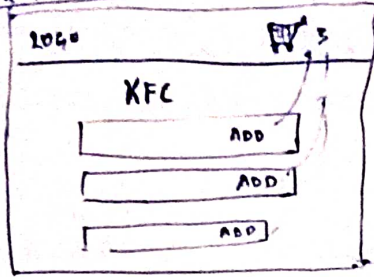 LOGO 3
KFC
ADD
ADD
ADD